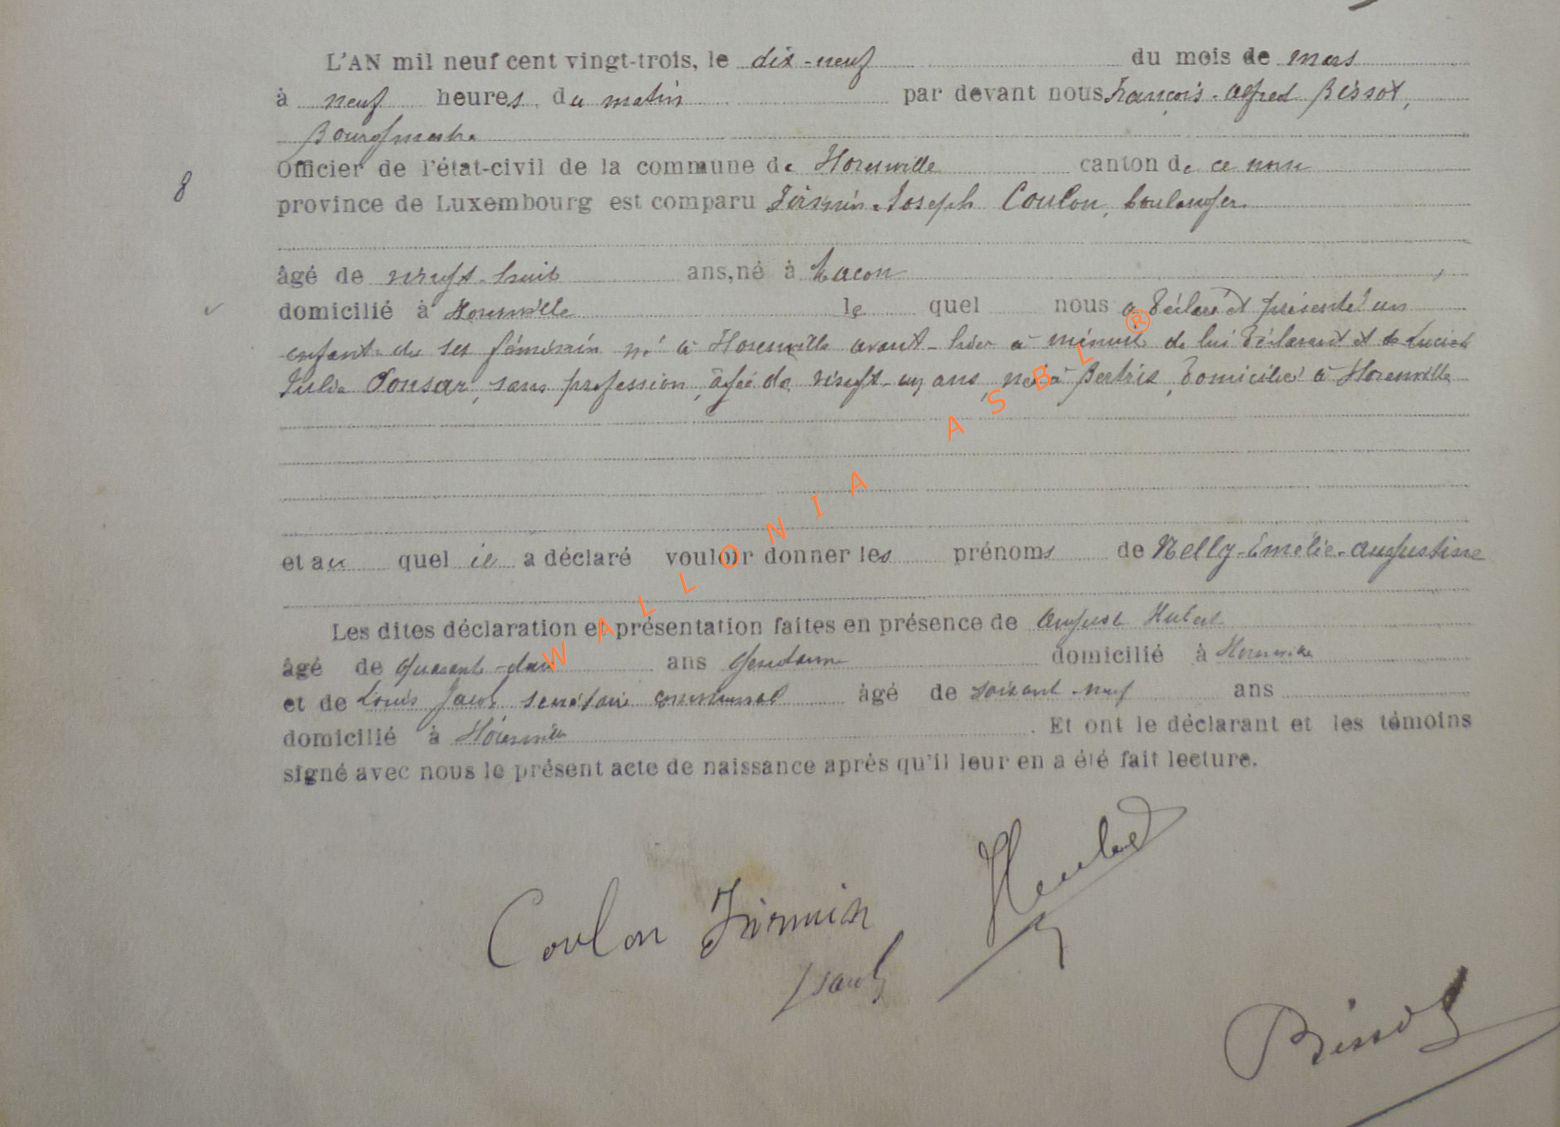 L'AN mil neuf cent vingt-trois, le dix-neuf du mois de mars
à neuf heures du matin par devant nous François-Alfred Bissot,
Bourgmestre
Officier de l'état-civil de la commune de Florenville canton de ce nom
8
province de Luxembourg est comparu Firmin-Joseph Coulon, boulanger
âgé de vingt-huit ans, né à Lacon,
domicilié à Florenville le quel nous a déclaré et présenté un
enfant du sex féminin né à Florenville avant-hier à minuit de lui déclarant et de Lucien
Julia Ponsar, sans profession, âgée de vingt-un ans, née à Bertrix, domiciliée à Florenville
et au quel il a déclaré vouloir donner les prénoms de Nelly-Emélie-Augustine
Les dites déclaration et présentation faites en présence de August Hubert
âgé de quarante-deux ans gendarme domicilié à Florenville
et de Louis Jacob secrétaire communal âgé de soixant-neuf ans
domicilié à Florenville. Et ont le déclarant et les témoins
signé avec nous le présent acte de naissance après qu'il leur en a été fait lecture.
Hubert
Coulon Firmin
Jacob
Bissot
WALLONIA ASBL®